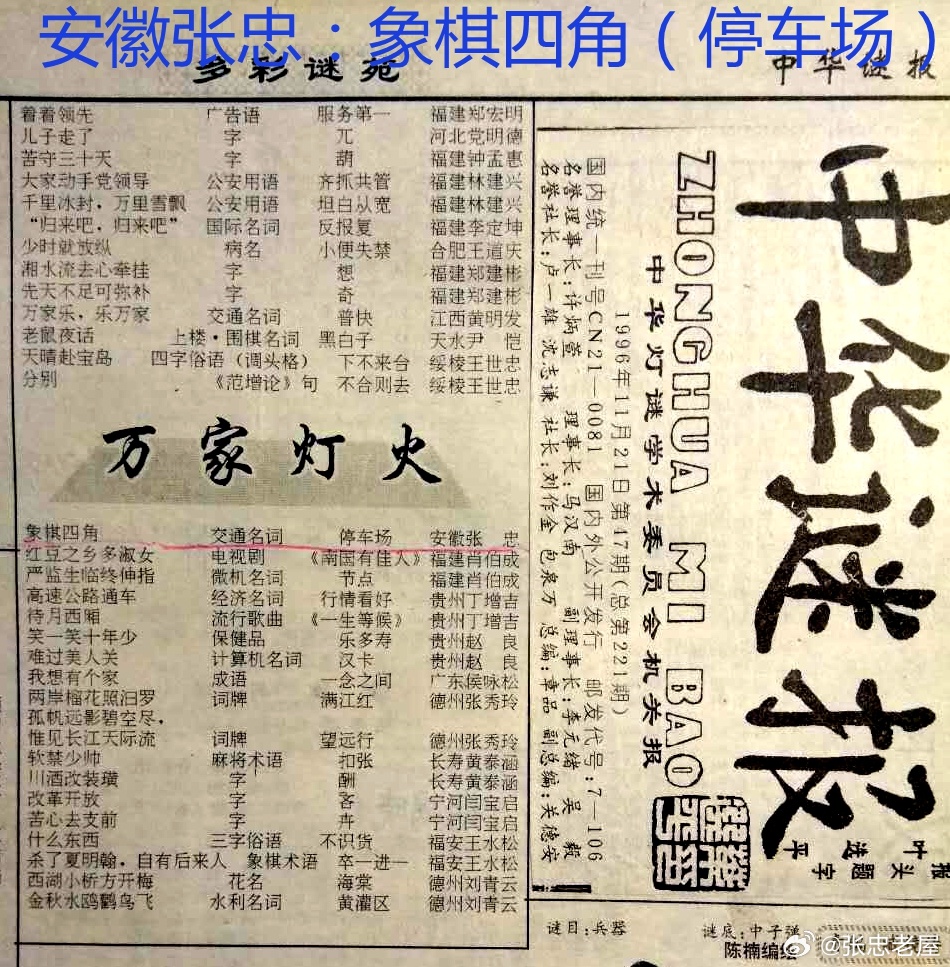 安徽张忠：象棋四角（停车场）
多彩谜苑
中华谜报
着着领先 广告语 服务第一 福建郑宏明
儿子走了 字 兀 河北党明德
苦守三十天 字 葫 福建钟孟惠
大家动手党领导 公安用语 齐抓共管 福建林建兴
千里冰封，万里雪飘 公安用语 坦白从宽 福建林建兴
“归来吧，归来吧” 国际名词 反报复 福建李定坤
少时就放纵 病名 小便失禁 合肥王道庆
湘水流去心牵挂 字 想 福建郑建彬
先天不足可弥补 字 奇 福建郑建彬
万家乐，乐万家 交通名词 普快 江西黄明发
老鼠夜话 上楼·围棋名词 黑白子 天水尹 恺
天晴赴宝岛 四字俗语（调头格） 下不来台 绥棱王世忠
分别 《范增论》句 不合则去 绥棱王世忠
万家灯火
象棋四角 交通名词 停车场 安徽张 忠
红豆之乡多淑女 电视剧 《南国有佳人》 福建肖伯成
严监生临终伸指 微机名词 节点 福建肖伯成
高速公路通车 经济名词 行情看好 贵州丁增吉
待月西厢 流行歌曲 《一生等候》 贵州丁增吉
笑一笑十年少 保健品 乐多寿 贵州赵 良
难过美人关 计算机名词 汉卡 贵州赵 良
我想有个家 成语 一念之间 广东侯咏松
两岸榴花照汨罗 词牌 满江红 德州张秀玲
孤帆远影碧空尽，
惟见长江天际流 词牌 望远行 德州张秀玲
软禁少帅 麻将术语 扣张 长寿黄泰涵
川酒改装璜 字 酬 长寿黄泰涵
改革开放 字 吝 宁河闫宝启
苦心去支前 字 卉 宁河闫宝启
什么东西 三字俗语 不识货 福安王水松
杀了夏明翰，自有后来人 象棋术语 卒一进一 福安王水松
西湖小桥方开梅 花名 海棠 德州刘青云
金秋水鸥鹳鸟飞 水利名词 黄灌区 德州刘青云
中华谜报
ZHONGHUA MI BAO
中华灯谜学术委员会机关报
1996年11月21日第47期(总第221期)
国内统一刊号CN21—0081 国内外公开发行 邮发代号：7—106
名誉理事长：许炳萱 理事长：马汉南 副理事长：李元绪 吴毅
名誉社长：卢一雄 沈志谦 社长：刘作金 包泉万 总编：章品 副总编：关德安
报头题字
叶选平
谜目：兵器 谜底：中子弹
陈楠编绘
@张忠老屋